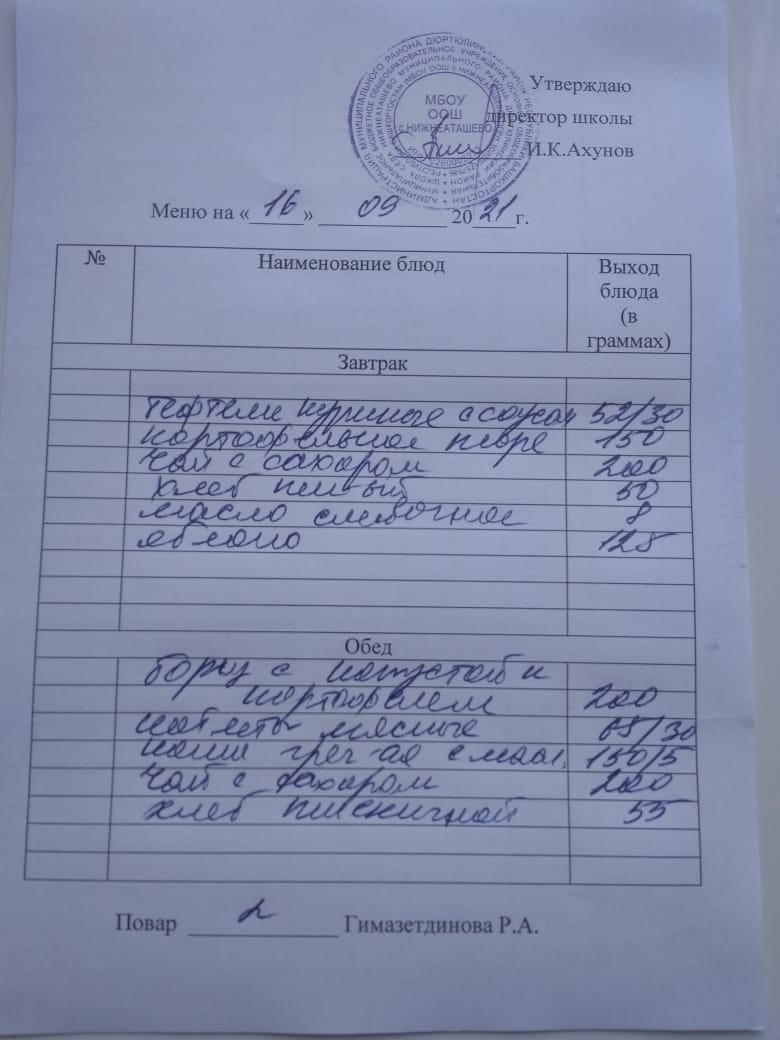 МБОУ
ООШ
с.НИЖНЕАТАШЕВО
Утверждаю
директор школы
И.К.Ахунов
Меню на «16» 09 2021г.
№ Наименование блюд Выход блюда (в граммах)
Завтрак
тефтели куриные с соусом 52/30
картофельное пюре 150
чай с сахаром 200
хлеб пш-ый 50
масло сливочное 8
яблоко 128
Обед
борщ с капустой и
картофелем 200
котлеты мясные 68/30
каша греч-ая с масл. 150/5
чай с сахаром 200
хлеб пшеничной 55
Повар Гимазетдинова Р.А.